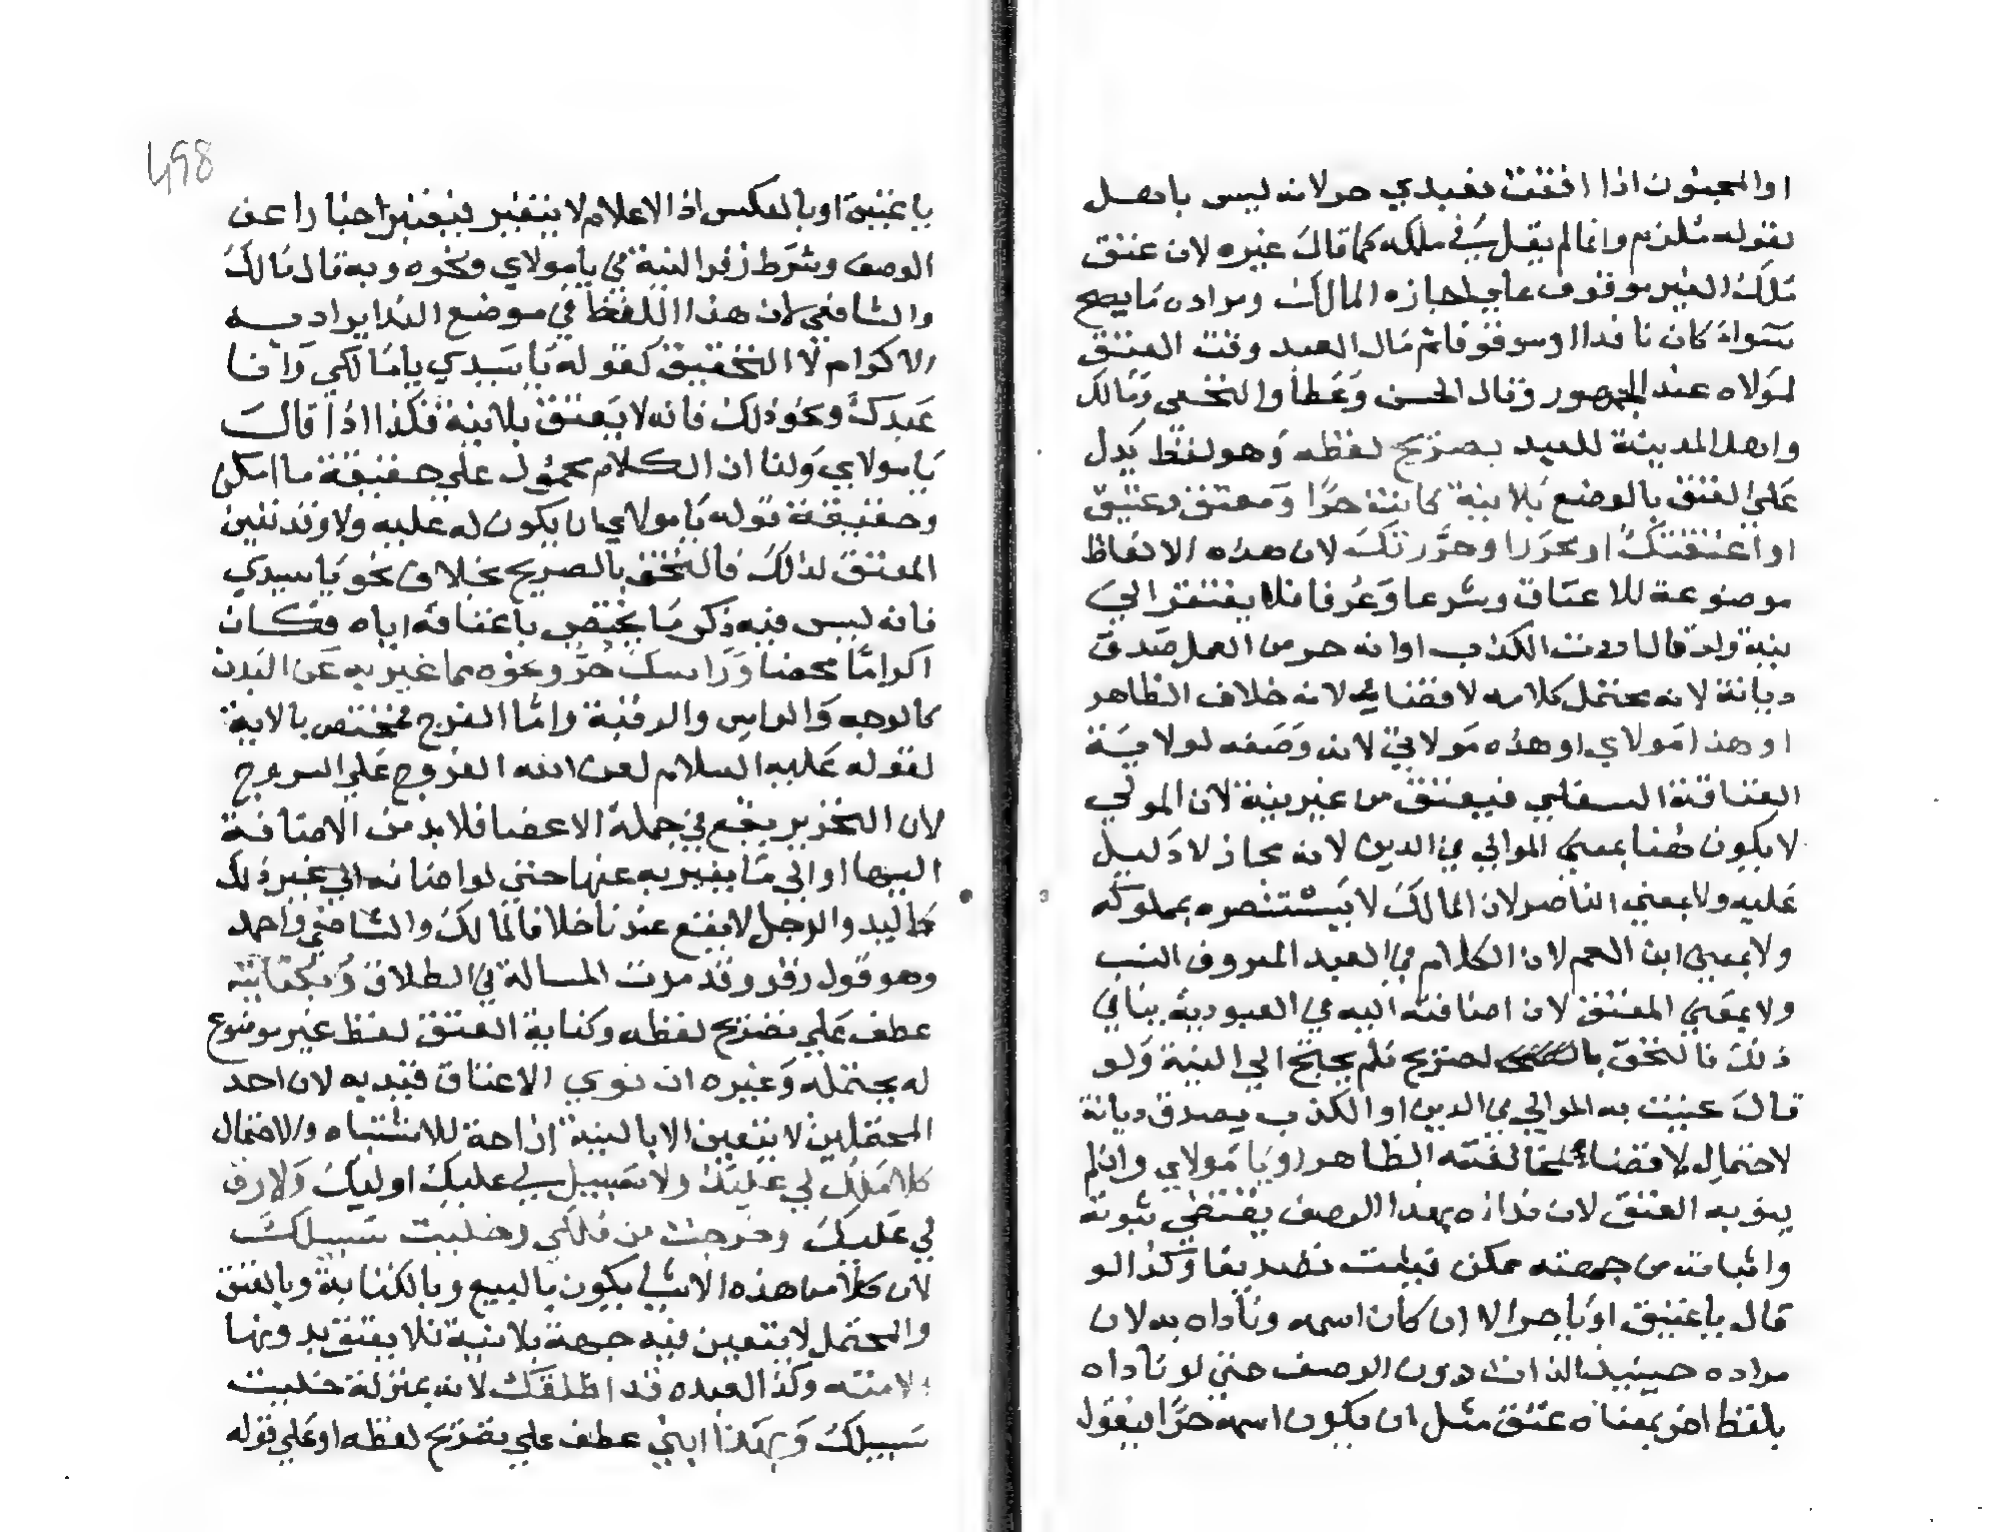 او المجنون اذا افقت فعبدي حر لانه ليس باهل
بقوله ملزم وانما لم يقل في ملكه كما قال غيره لان عتق
ملك الغير موقوف علي اجازه المالك ومراده ما يصح
سواء كان نافذا او موقوفا ثم مال العبد وقت العتق
لمولاه عند الجمهور وقال الحسن وعطا والنخعي ومالك
واهل المدينة للعبد بصريح لفظه وهو لفظ يدل
علي العتق بالوضع بلا نية كانت حرا ومعتق وعتيق
او اعتقتك او محررا وحررتك لان هذه الالفاظ
موضوعة للاعتاق وشرعا وعرفا فلا يفتقر الي
نية ولو قال اردت الكذب او انه حر من العمل صدق
ديانة لانه يحتمل كلامه لا قضا لانه خلاف الظاهر
او هذا مولاي او هذه مولاتي لانه وصفه لولاية
العتاقة السفلي فيعتق من غير نية لان المولي
لا يكون هنا بمعني الموالي في الدين لانه مجاز لا دليل
عليه ولا بمعني الناصر لان المالك لا يستنصره بمملوكه
ولا بمعني ابن العم لان الكلام في العبد المعروف النسب
ولا بمعني المعتق لان اضافته اليه في العبودية ينافي
ذلك فالتحق بالصريح فلم يحتج الي النية ولو
قال عنيت به الموالي في الدين او الكذب يصدق ديانة
لاحتماله لا قضاء لمخالفته الظاهر او يا مولاي وان لم
ينو به العتق لان نداءه بهذا الوصف يقتضي ثبوته
واثباته من جهته ممكن فيثبت تصديقا وكذا لو
قال يا عتيق او يا حر الا ان كان اسمه وناداه به لان
مراده حينيذ الذات دون الوصف حتي لو ناداه
بلفظ اخر بمعناه عتق مثل ان يكون اسمه حرا فيقول
498
يا عتيق او بالعكس اذ الاعلام لا يتغير فيعتبر اخبارا عن
الوصف وشرط زفر النية في يا مولاي ونحوه وبه قال مالك
والشافعي لان هذا اللفظ في موضع الندا يراد به
الاكرام لا التحقيق كقوله يا سيدي يا مالكي وانا
عبدك ونحو ذلك فانه لا يعتق بلا نية فكذا اذا قال
يا مولاي ولنا ان الكلام محمول علي حقيقة ما امكن
وحقيقة قوله يا مولاي ان يكون له عليه ولا وقد تعين
المعتق لذلك فالتحق بالصريح بخلاف نحو يا سيدي
فانه ليس فيه ذكر ما يختص باعتاقه اياه فكان
اكراما محضا وراسك حر ونحوه مما عبر به عن البدن
كالوجه والراس والرقبة واما الفرج فمختص بالامة
لقوله عليه السلام لعن الله الفروج علي السروج
لان التحرير يقع في جملة الاعضا فلا بد من الاضافة
اليها او الي ما يعبر به عنها حتي لو اضافه الي غير ذلك
كاليد والرجل لا يقع عندنا خلافا لمالك والشافعي واحمد
وهو قول زفر وقد مرت المسالة في الطلاق وبكنايته
عطف علي بصريح لفظه وكناية العتق لفظ غير موضوع
له يحتمله وغيره ان نوي الاعتاق قيد به لان احد
المحتملين لا يتعين الا بالنية ازاحة للاشتباه والاحتمال
كلا ملك لي عليك ولا سبيل لي عليك او ليك ولا رق
لي عليك وخرجت من ملكي وخليت سبيلك
لان كلا من هذه الاشيا يكون بالبيع وبالكتابة وبالعتق
والمحتمل لا يتعين فيه جهة بلا نية فلا يعتق بدونها
لامته وكذا العبده قد اطلقتك لانه بمنزلة خليت
سبيلك وبهذا ابني عطف علي بصريح لفظه او علي قوله